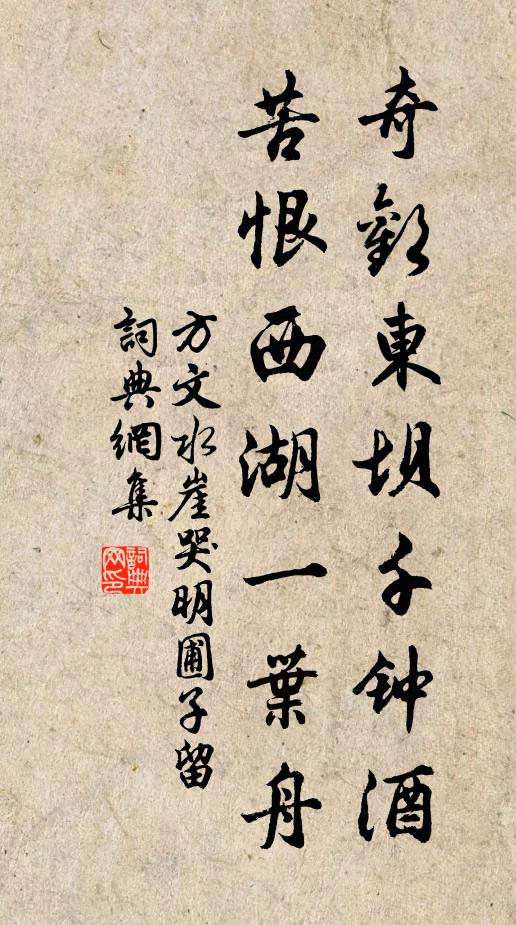 奇歡東坝千钟酒
苦恨西湖一葉舟
方文水崖哭明圃子留
詞典網集
詞典網印